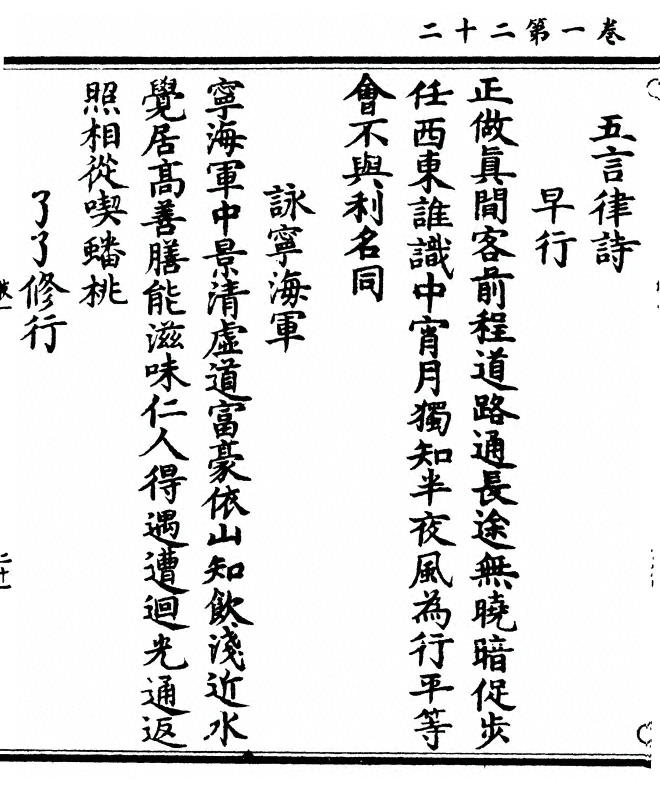 卷一第二十二
五言律詩
早行
正做眞閒客前程道路通長途無曉暗促步
任西東誰識中宵月獨知半夜風為行平等
會不與利名同
詠寧海軍
寧海軍中景清虛道富豪依山知飲淺近水
覺居高善膳能滋味仁人得遇遭迴光通返
照相從喫蟠桃
了了修行